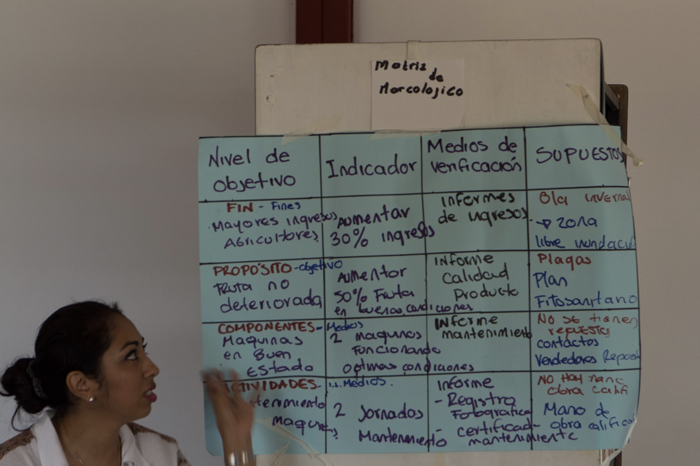 Matriz
de
Marcologico
Nivel de
objetivo
Indicador
Medios de
verificación
SUPUESTOS
FIN - Fines
Mayores ingresos
Agricultores
Aumentar
30% ingresos
Informes
de ingresos
Ola invernal
→ zona
libre inundació
PROPÓSITO - objetivo
Fruta no
deteriorada
Aumentar
50% Fruta
en buenas condiciones
Informe
Calidad
Producto
Plagas
Plan
Fitosanitario
COMPONENTES - Medios
Maquinas
en Buen
Estado
2 maquinas
Funcionando
optimas condiciones
Informe
mantenimiento
No se tienen
repuestos
contactos
Vendedores
ACTIVIDADES - Medios
mantenimiento
2 Jornadas
Mantenimiento
Informe
- Registro
Fotografica
- certificad
mantenimiente
No Hay
obra
Mano de
obra